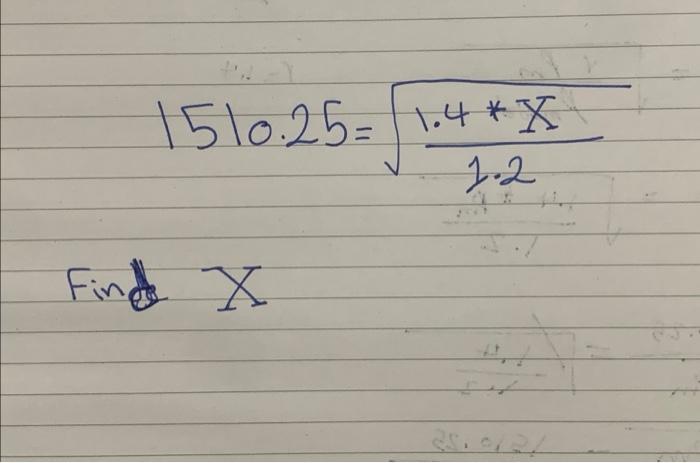 1510.25 = √(1.4 * X / 1.2)
Find X